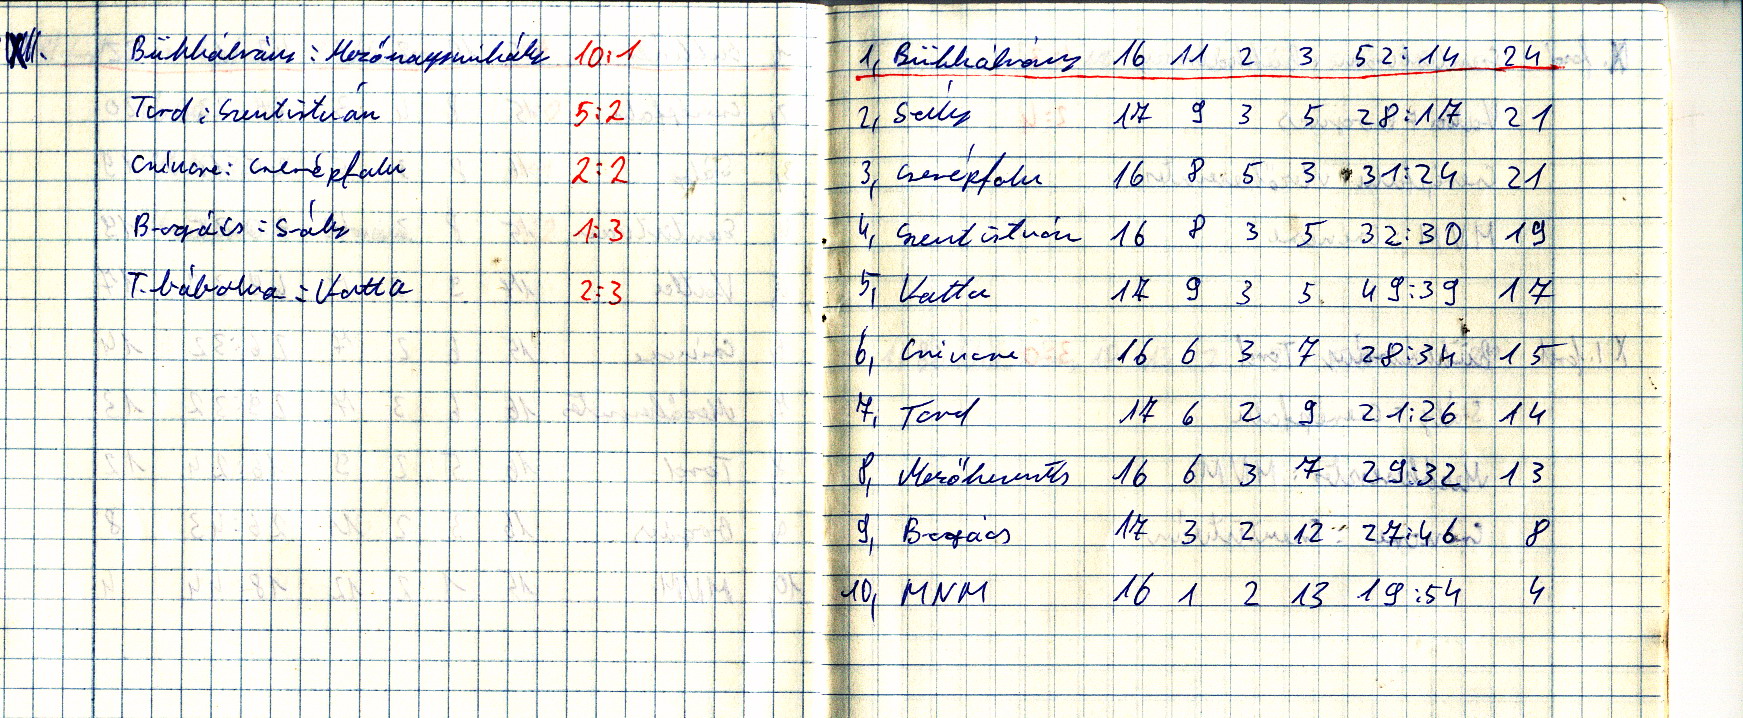 XII.
Bükkábrány : Mezőnagymihály 10:1
Tard : Szentistván 5:2
Csincse : Cserépfalu 2:2
Bogács : Sály 1:3
T.bábolna : Vatta 2:3
1, Bükkábrány 16 11 2 3 52:14 24
2, Sály 17 9 3 5 28:17 21
3, Cserépfalu 16 8 5 3 31:24 21
4, Szentistván 16 8 3 5 32:30 19
5, Vatta 17 9 3 5 49:39 17
6, Csincse 16 6 3 7 28:34 15
7, Tard 17 6 2 9 21:26 14
8, Mezőkeresztes 16 6 3 7 29:32 13
9, Bogács 17 3 2 12 27:46 8
10, MNM 16 1 2 13 19:54 4